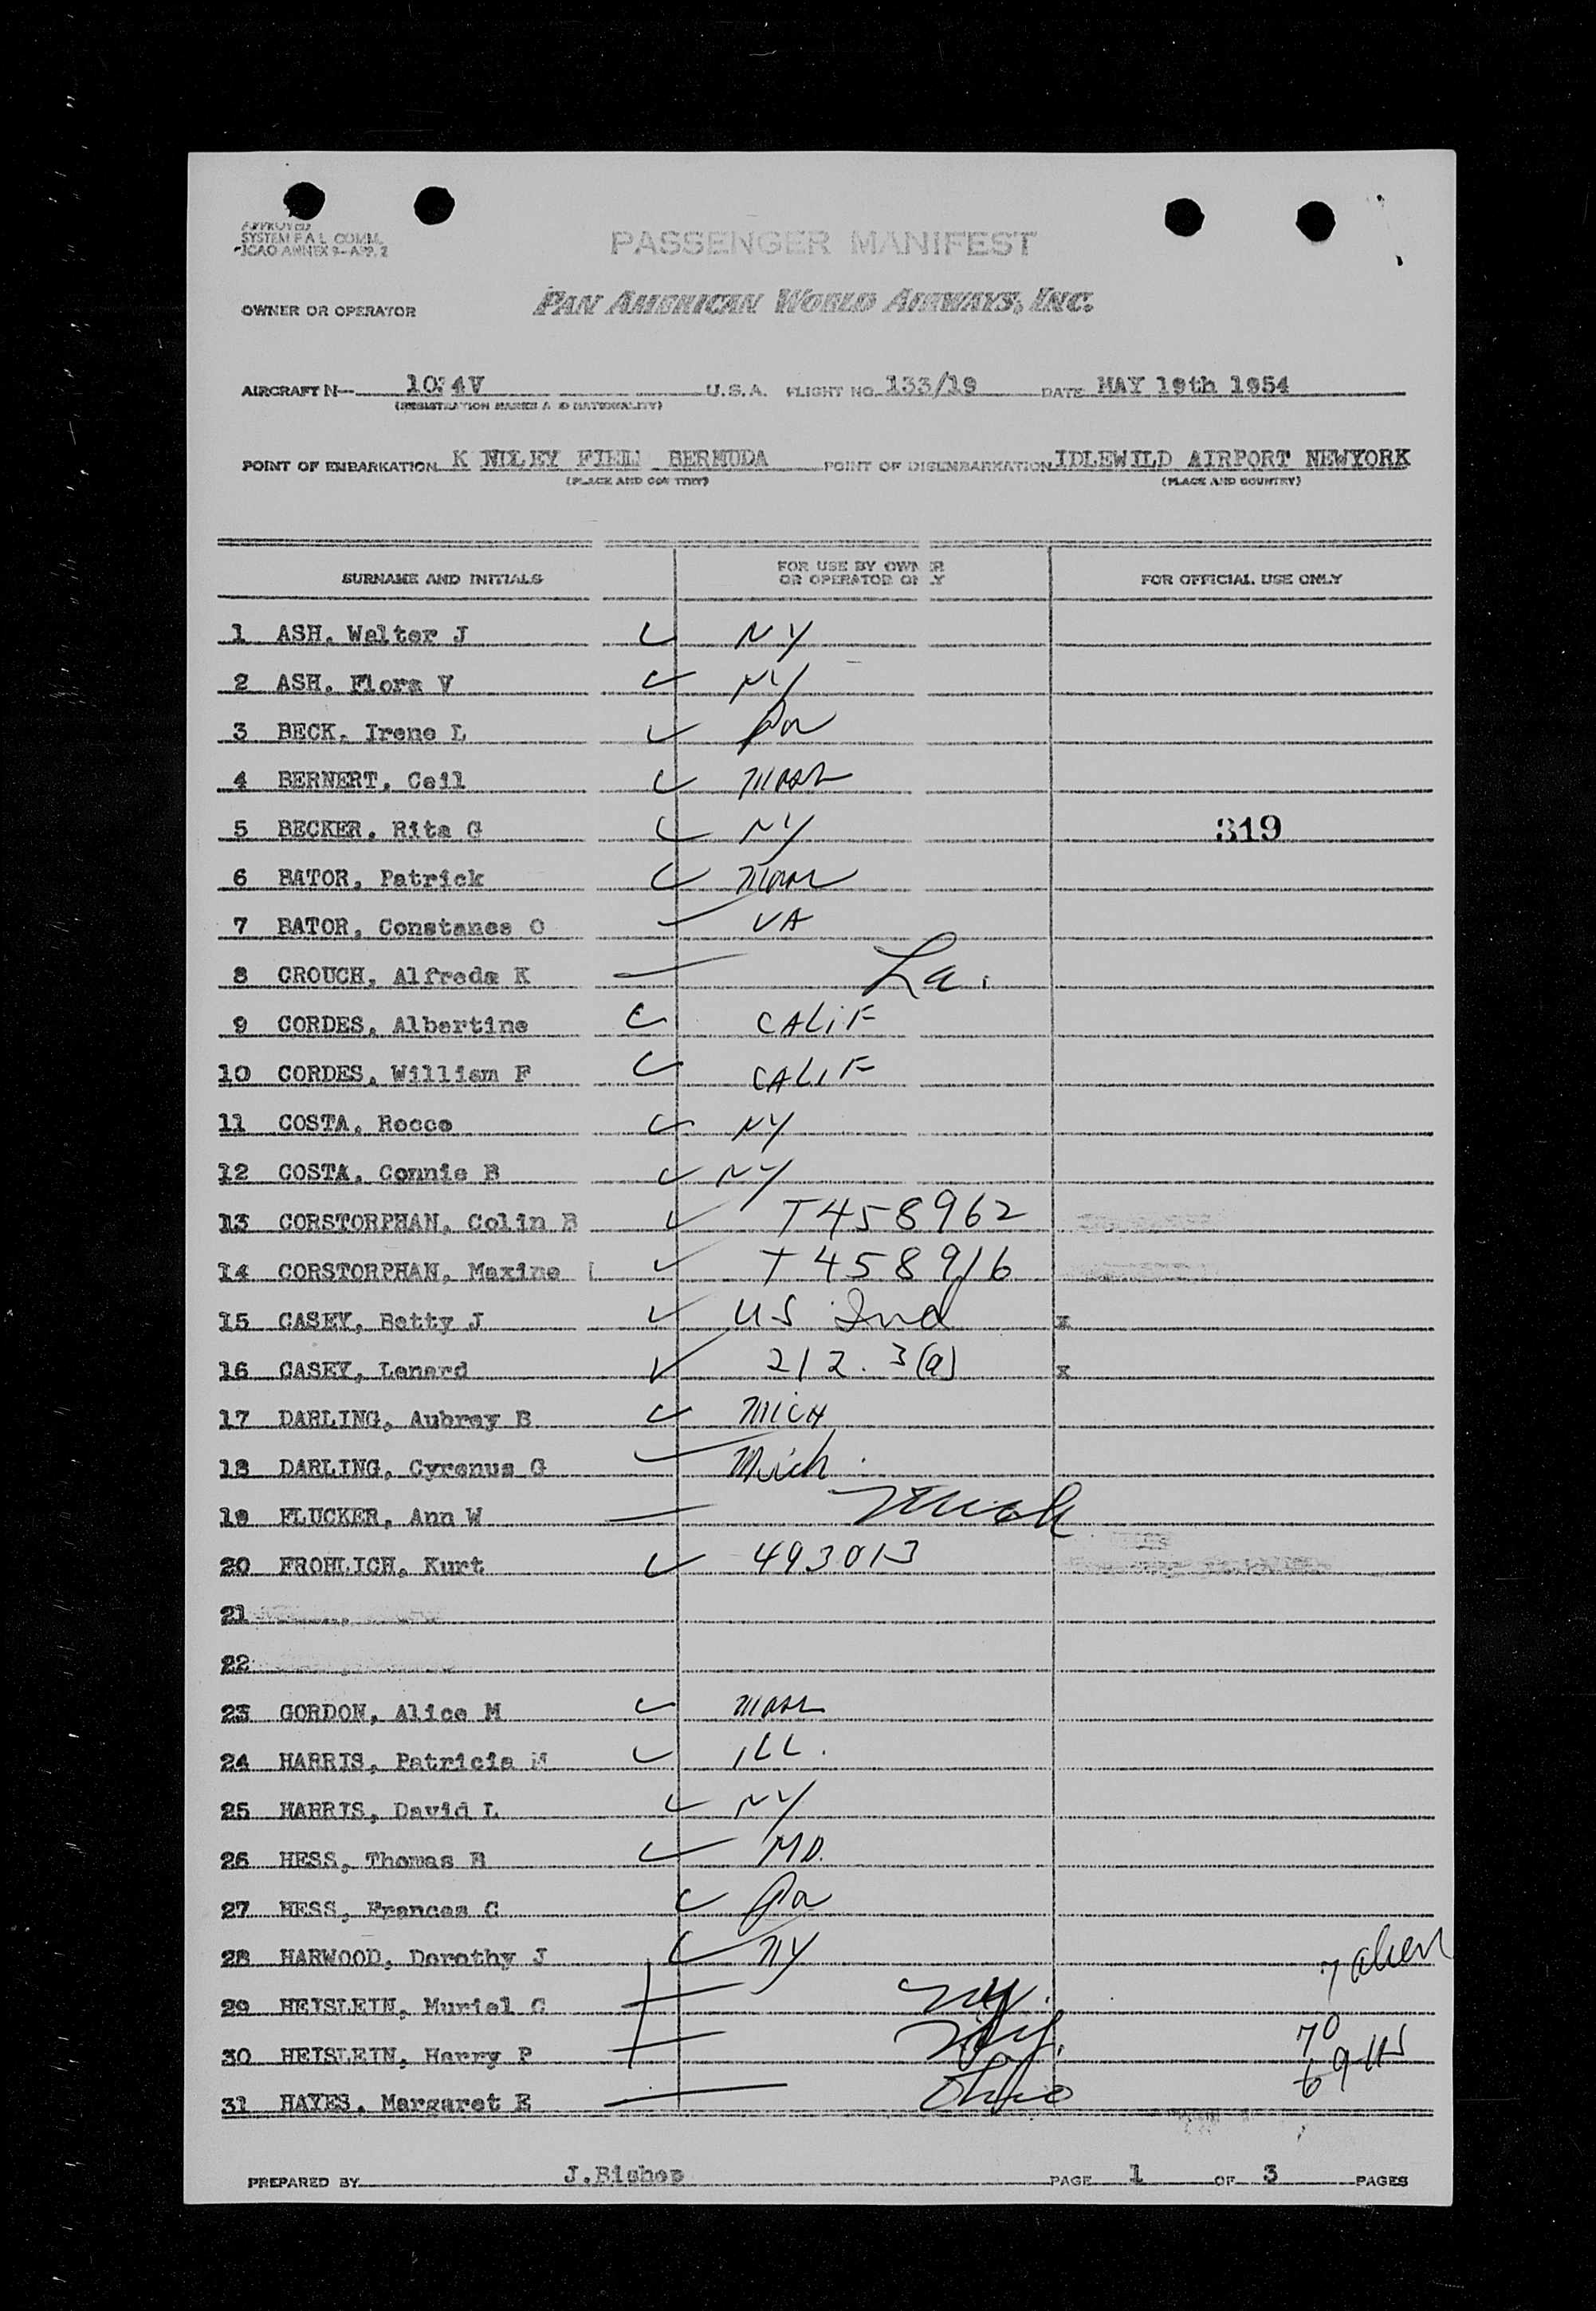 APPROVED
SYSTEM F A L COMM.
ICAO ANNEX 9-APP. 2
PASSENGER MANIFEST
OWNER OR OPERATOR PAN AMERICAN WORLD AIRWAYS, INC.
AIRCRAFT N- U.S.A. FLIGHT NO. 133/19 DATE MAY 19th 1954
(REGISTRATION MARKS AND NATIONALITY)
POINT OF EMBARKATION K NDLEY FIELD BERMUDA POINT OF DISEMBARKATION IDLEWILD AIRPORT NEWYORK
(PLACE AND COUNTRY) (PLACE AND COUNTRY)
SURNAME AND INITIALS FOR USE BY OWNER OR OPERATOR ONLY FOR OFFICIAL USE ONLY
1 ASH. Walter J NY
2 ASH. Flora V NY
3 BECK. Irene L Pa
4 BERNERT, Ceil Mass
5 BECKER. Rita G NY 319
6 BATOR, Patrick Mass
7 BATOR, Constance O VA
8 CROUCH, Alfreda K La.
9 CORDES, Albertine CALIF
10 CORDES, William F CALIF
11 COSTA, Rocco NY
12 COSTA, Connie B NY
13 CORSTORPHAN, Colin B T458962
14 CORSTORPHAN, Maxine T458916
15 CASEY, Betty J US Ind x
16 CASEY, Lenard 212.3(a) x
17 DARLING, Aubrey B MICH
18 DARLING, Cyrenus G Mich.
19 FLUCKER, Ann W
20 FROHLICH, Kurt 493013
21
22
23 GORDON, Alice M Mass
24 HARRIS, Patricia M ILL.
25 HARRIS, David L NY
26 HESS, Thomas B MD.
27 HESS, Frances C Pa
28 HARWOOD, Dorothy J NY 7 alien
29 HEISLEIN, Muriel C NY.
30 HEISLEIN, Harry P NY. 70
69-US
31 HAYES. Margaret E Ohio
PREPARED BY J.Bishop PAGE 1 OF 3 PAGES